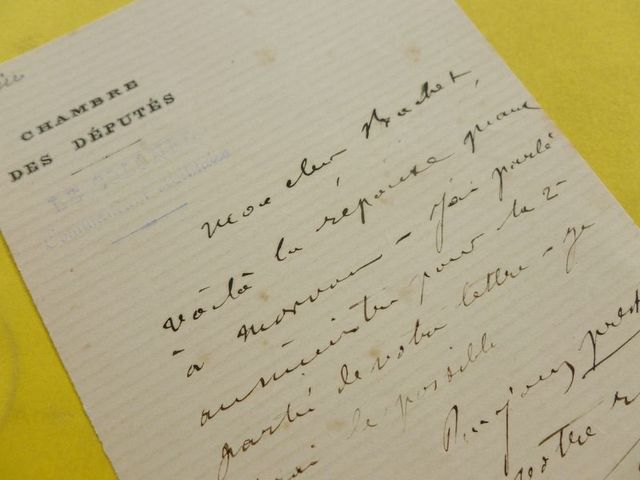 CHAMBRE
DES DÉPUTÉS
Mon cher Bachet,
voilà la réponse
à – j'ai parlé
au ministre pour la 2e
partie de votre lettre – je
le possible
Toujours prest
votre